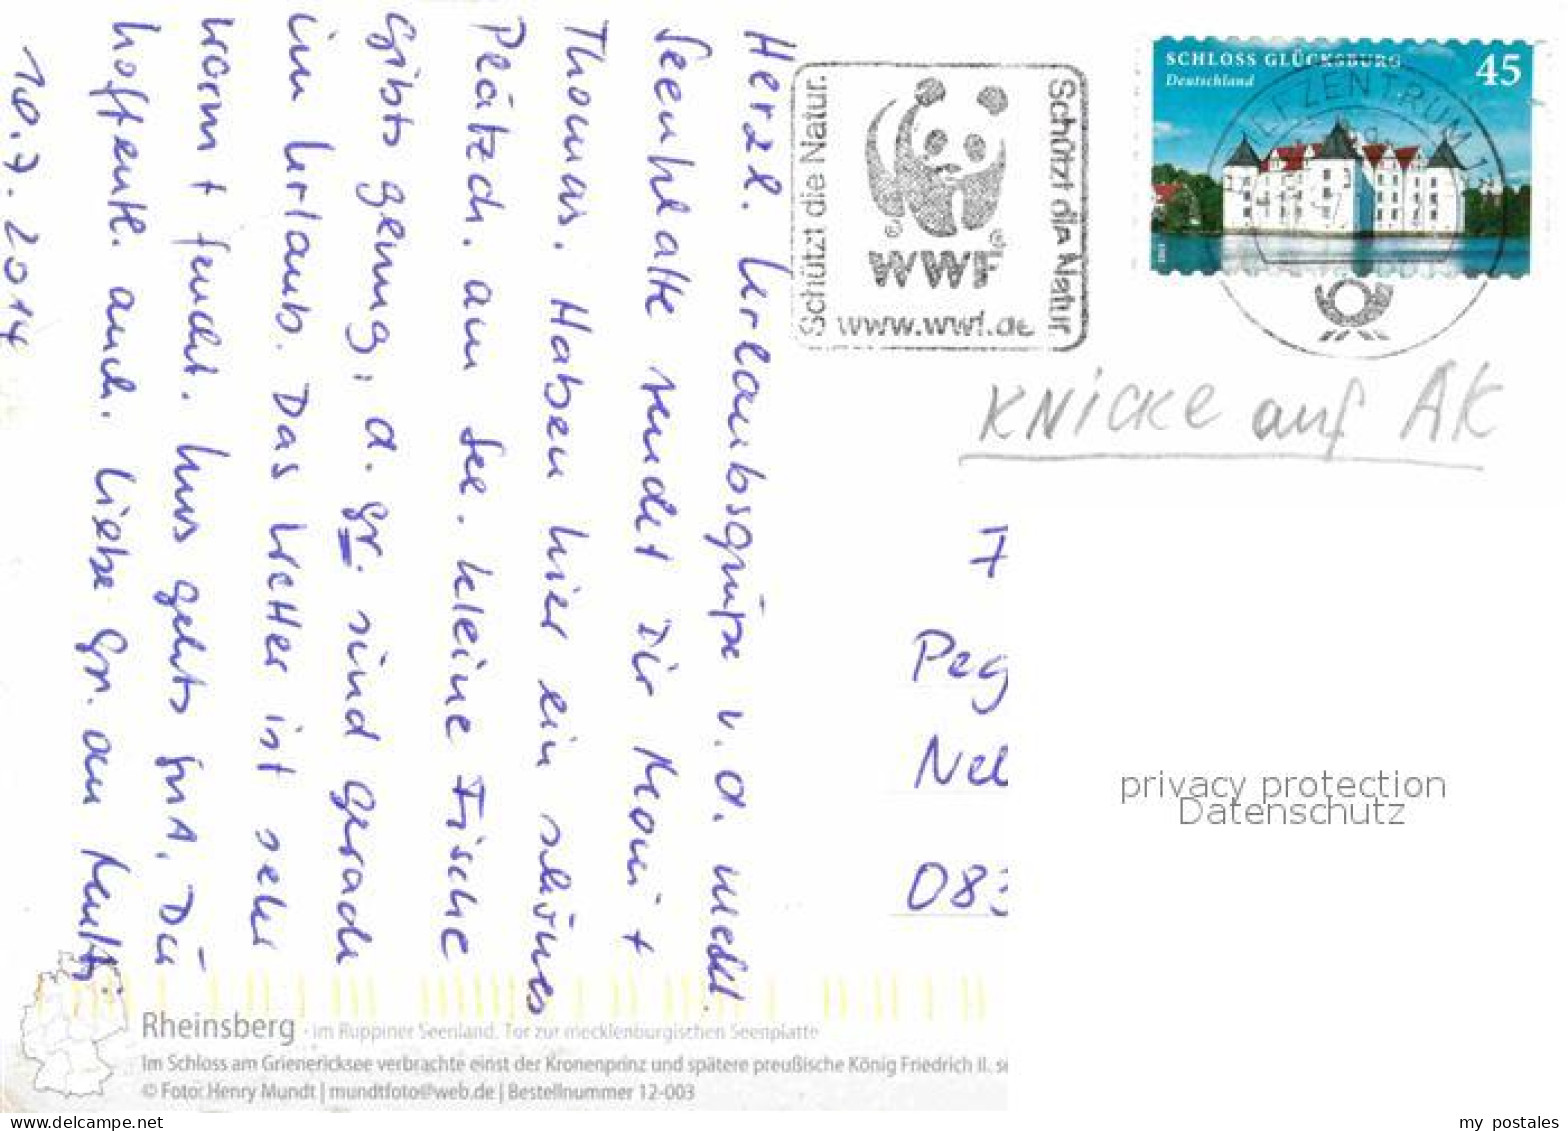 10.7.2014
Herzl. Urlaubsgrüße v. d. meckl.
Seenplatte sendet Dir Moni +
Thomas. Haben hier ein schönes
Plätzch. am See. Kleine Fische
gibts genug, d. gr. sind gerade
im Urlaub. Das Wetter ist sehr
warm + feucht. Uns gehts gut. Du
hoffentl. auch. Liebe Gr. an Mutti
Schützt die Natur.
WWF
www.wwf.de
Schützt die Natur
SCHLOSS GLÜCKSBURG
Deutschland
45
BRIEFZENTRUM
KNicke auf AK
F
Peg
Nel
083
privacy protection
Datenschutz
Rheinsberg - im Ruppiner Seenland. Tor zur mecklenburgischen Seenplatte
Im Schloss am Grienericksee verbrachte einst der Kronenprinz und spätere preußische König Friedrich II. se
© Foto: Henry Mundt | mundtfoto@web.de | Bestellnummer 12-003
www.delcampe.net
my_postales